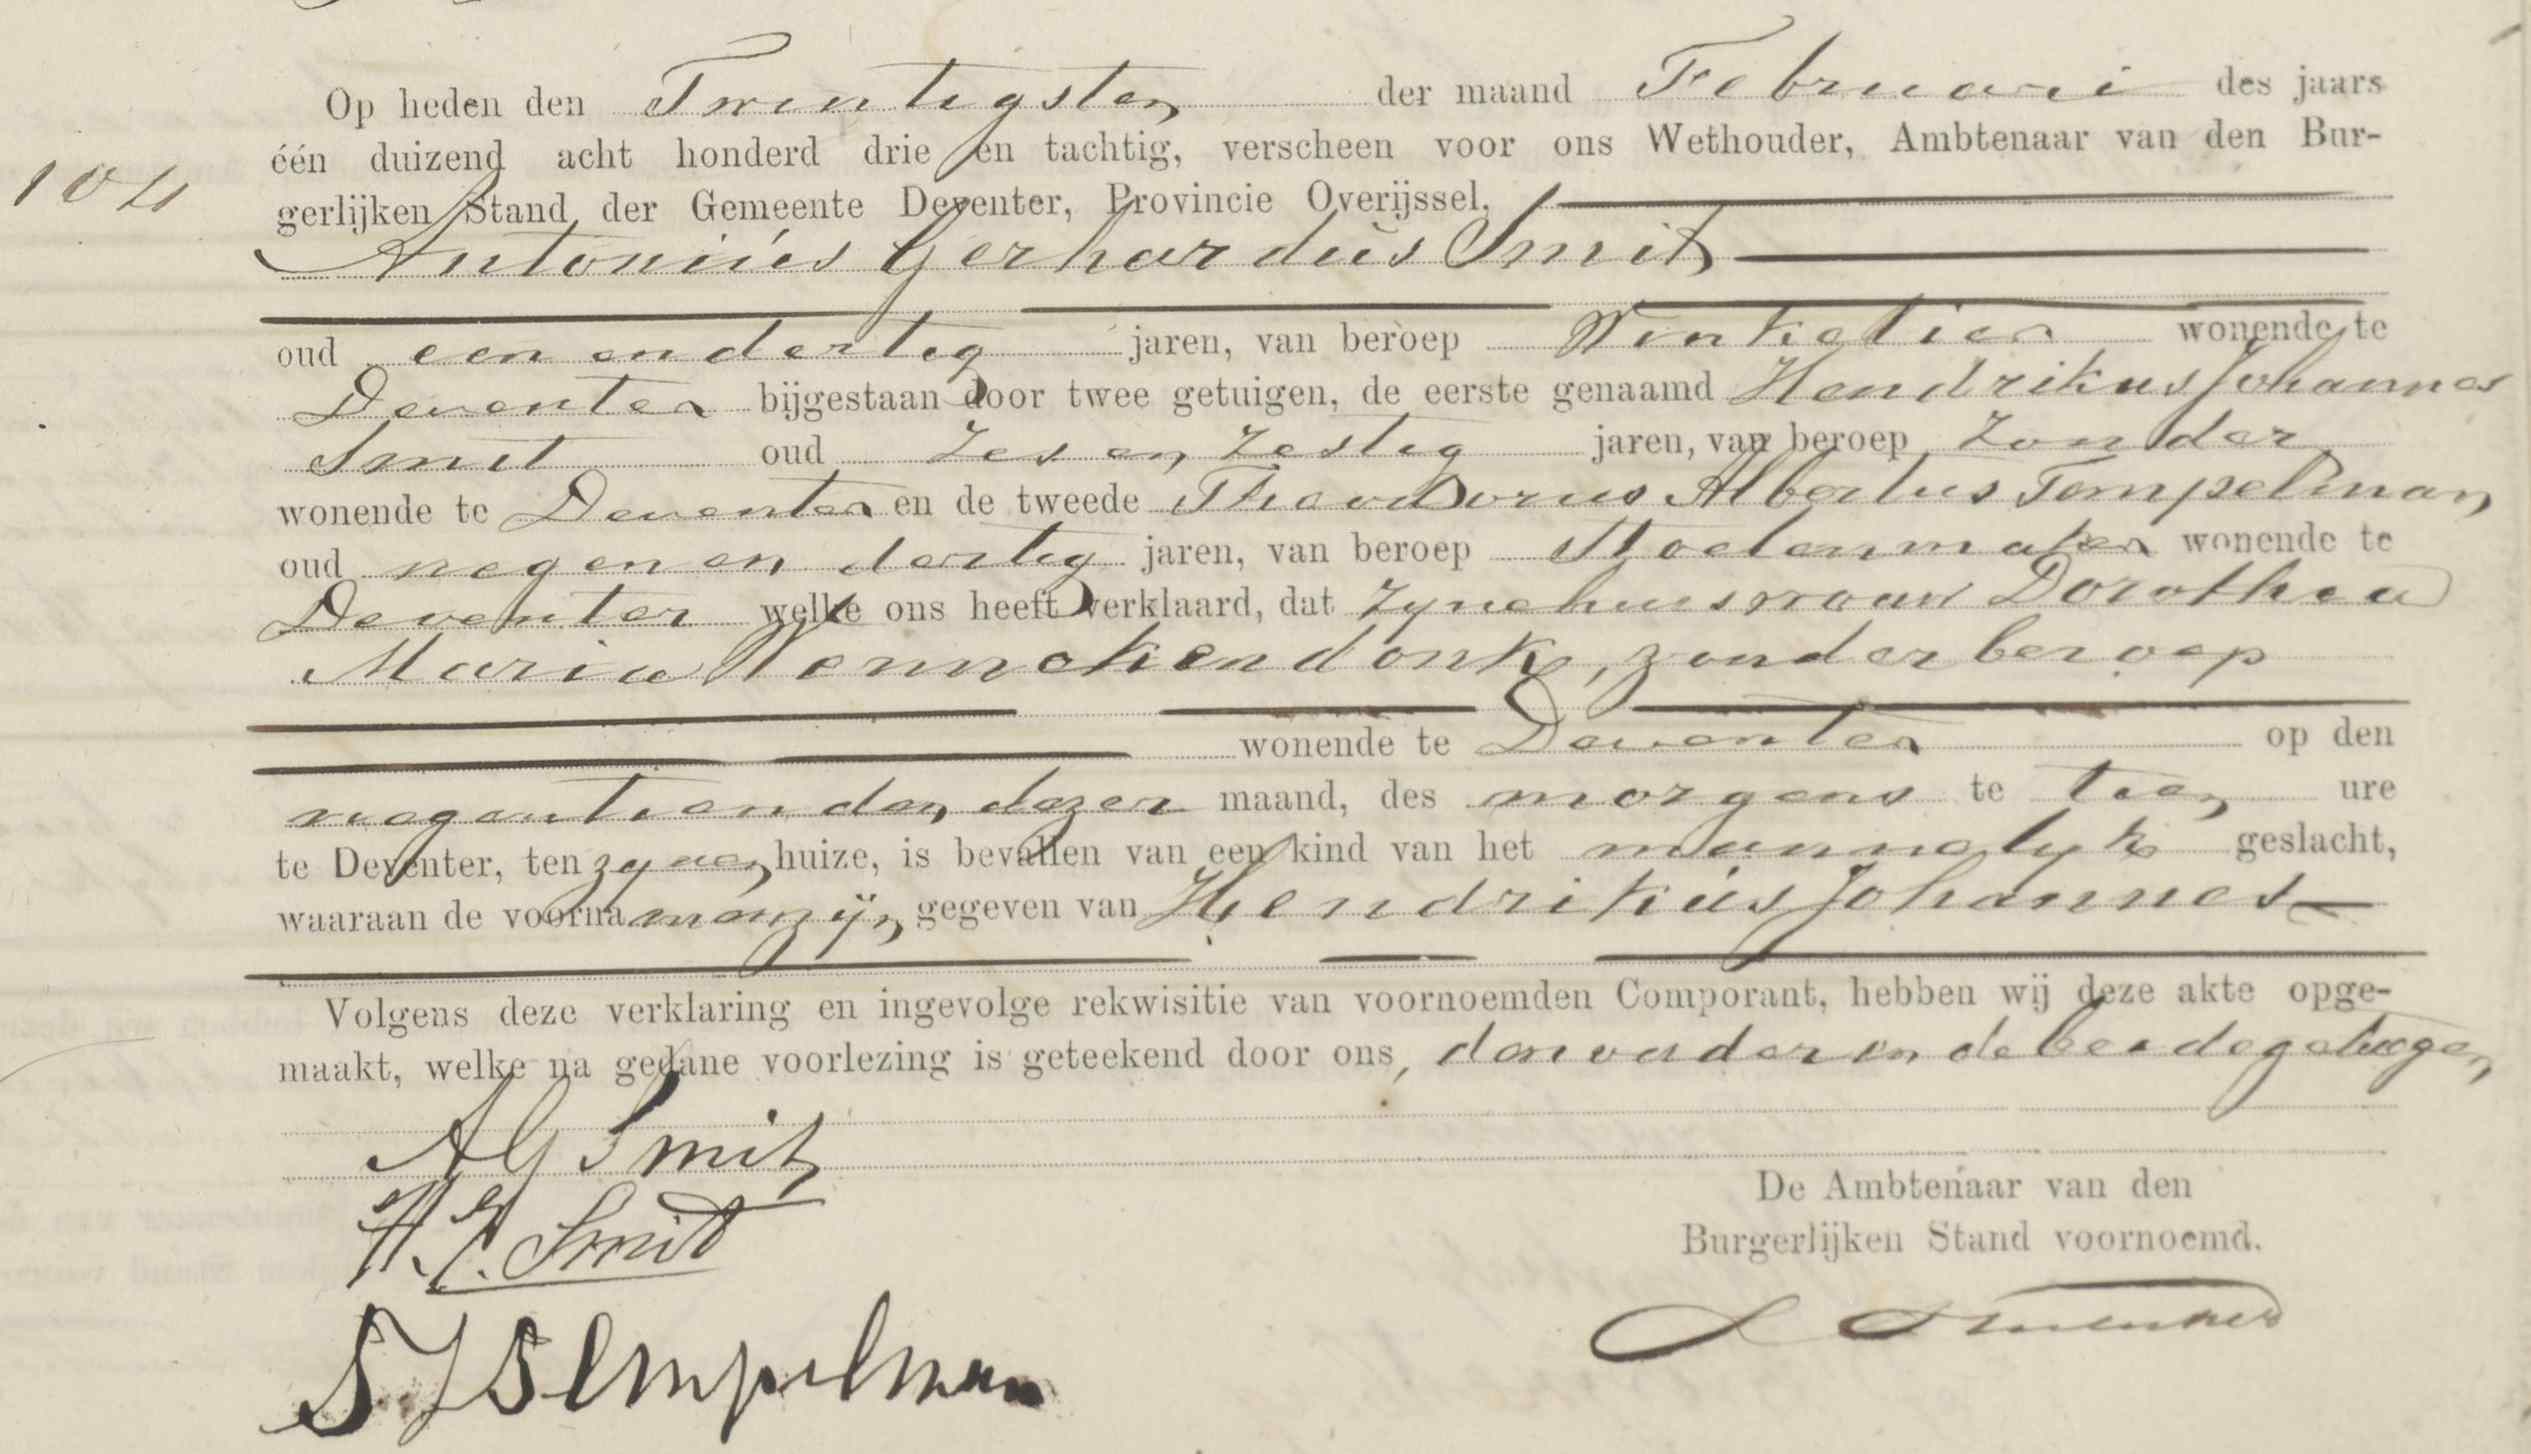 Op heden den Twintigsten der maand Februari des jaars
104
één duizend acht honderd drie en tachtig, verscheen voor ons Wethouder, Ambtenaar van den Bur-
gerlijken Stand der Gemeente Deventer, Provincie Overijssel,
Antonius Gerhardus Smit
oud een en dertig jaren, van beroep Winkelier wonende te
Deventer bijgestaan door twee getuigen, de eerste genaamd Hendrikus Johannes
Smit oud zes en zestig jaren, van beroep zonder
wonende te Deventer en de tweede Theodorus Albertus Tempelman
oud negen en dertig jaren, van beroep Stoelenmaker wonende te
Deventer welke ons heeft verklaard, dat zyne huisvrouw Dorothea
Maria Wennekendonk, zonder beroep
wonende te Deventer op den
negentienden dezer maand, des morgens te tien ure
te Deventer, ten zynen huize, is bevallen van een kind van het mannelyk geslacht,
waaraan de voornamen zijn gegeven van Hendrikus Johannes
Volgens deze verklaring en ingevolge rekwisitie van voornoemden Comporant, hebben wij deze akte opge-
maakt, welke na gedane voorlezing is geteekend door ons, den vader en de beide getuigen
AG Smit
De Ambtenaar van den
H. Smit
Burgerlijken Stand voornoemd.
Tempelman